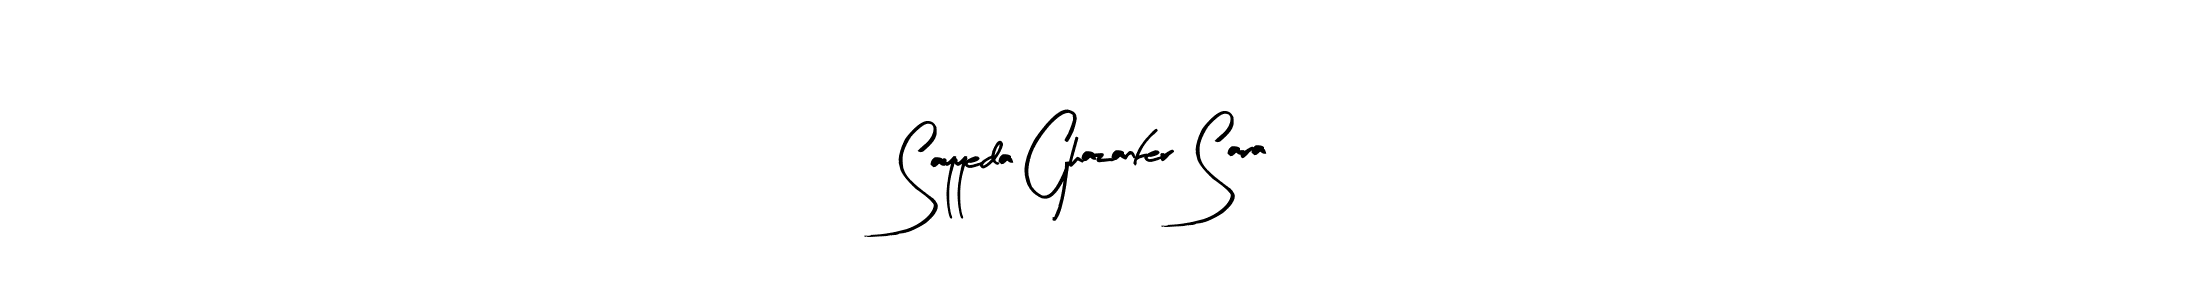 Sayyeda Ghazanfer Sara